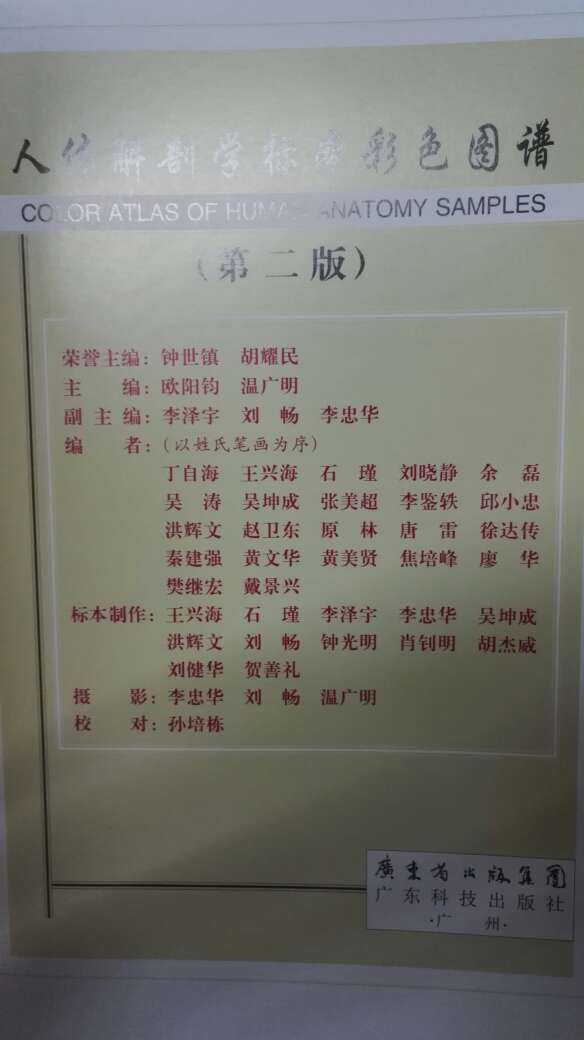 人体解剖学标本彩色图谱
COLOR ATLAS OF HUMAN ANATOMY SAMPLES
（第二版）
荣誉主编：钟世镇 胡耀民
主 编：欧阳钧 温广明
副主编：李泽宇 刘 畅 李忠华
编 者：（以姓氏笔画为序）
丁自海 王兴海 石 瑾 刘晓静 余 磊
吴 涛 吴坤成 张美超 李鉴轶 邱小忠
洪辉文 赵卫东 原 林 唐 雷 徐达传
秦建强 黄文华 黄美贤 焦培峰 廖 华
樊继宏 戴景兴
标本制作：王兴海 石 瑾 李泽宇 李忠华 吴坤成
洪辉文 刘 畅 钟光明 肖钊明 胡杰威
刘健华 贺善礼
摄 影：李忠华 刘 畅 温广明
校 对：孙培栋
廣东省出版集團
广东科技出版社
·广 州·